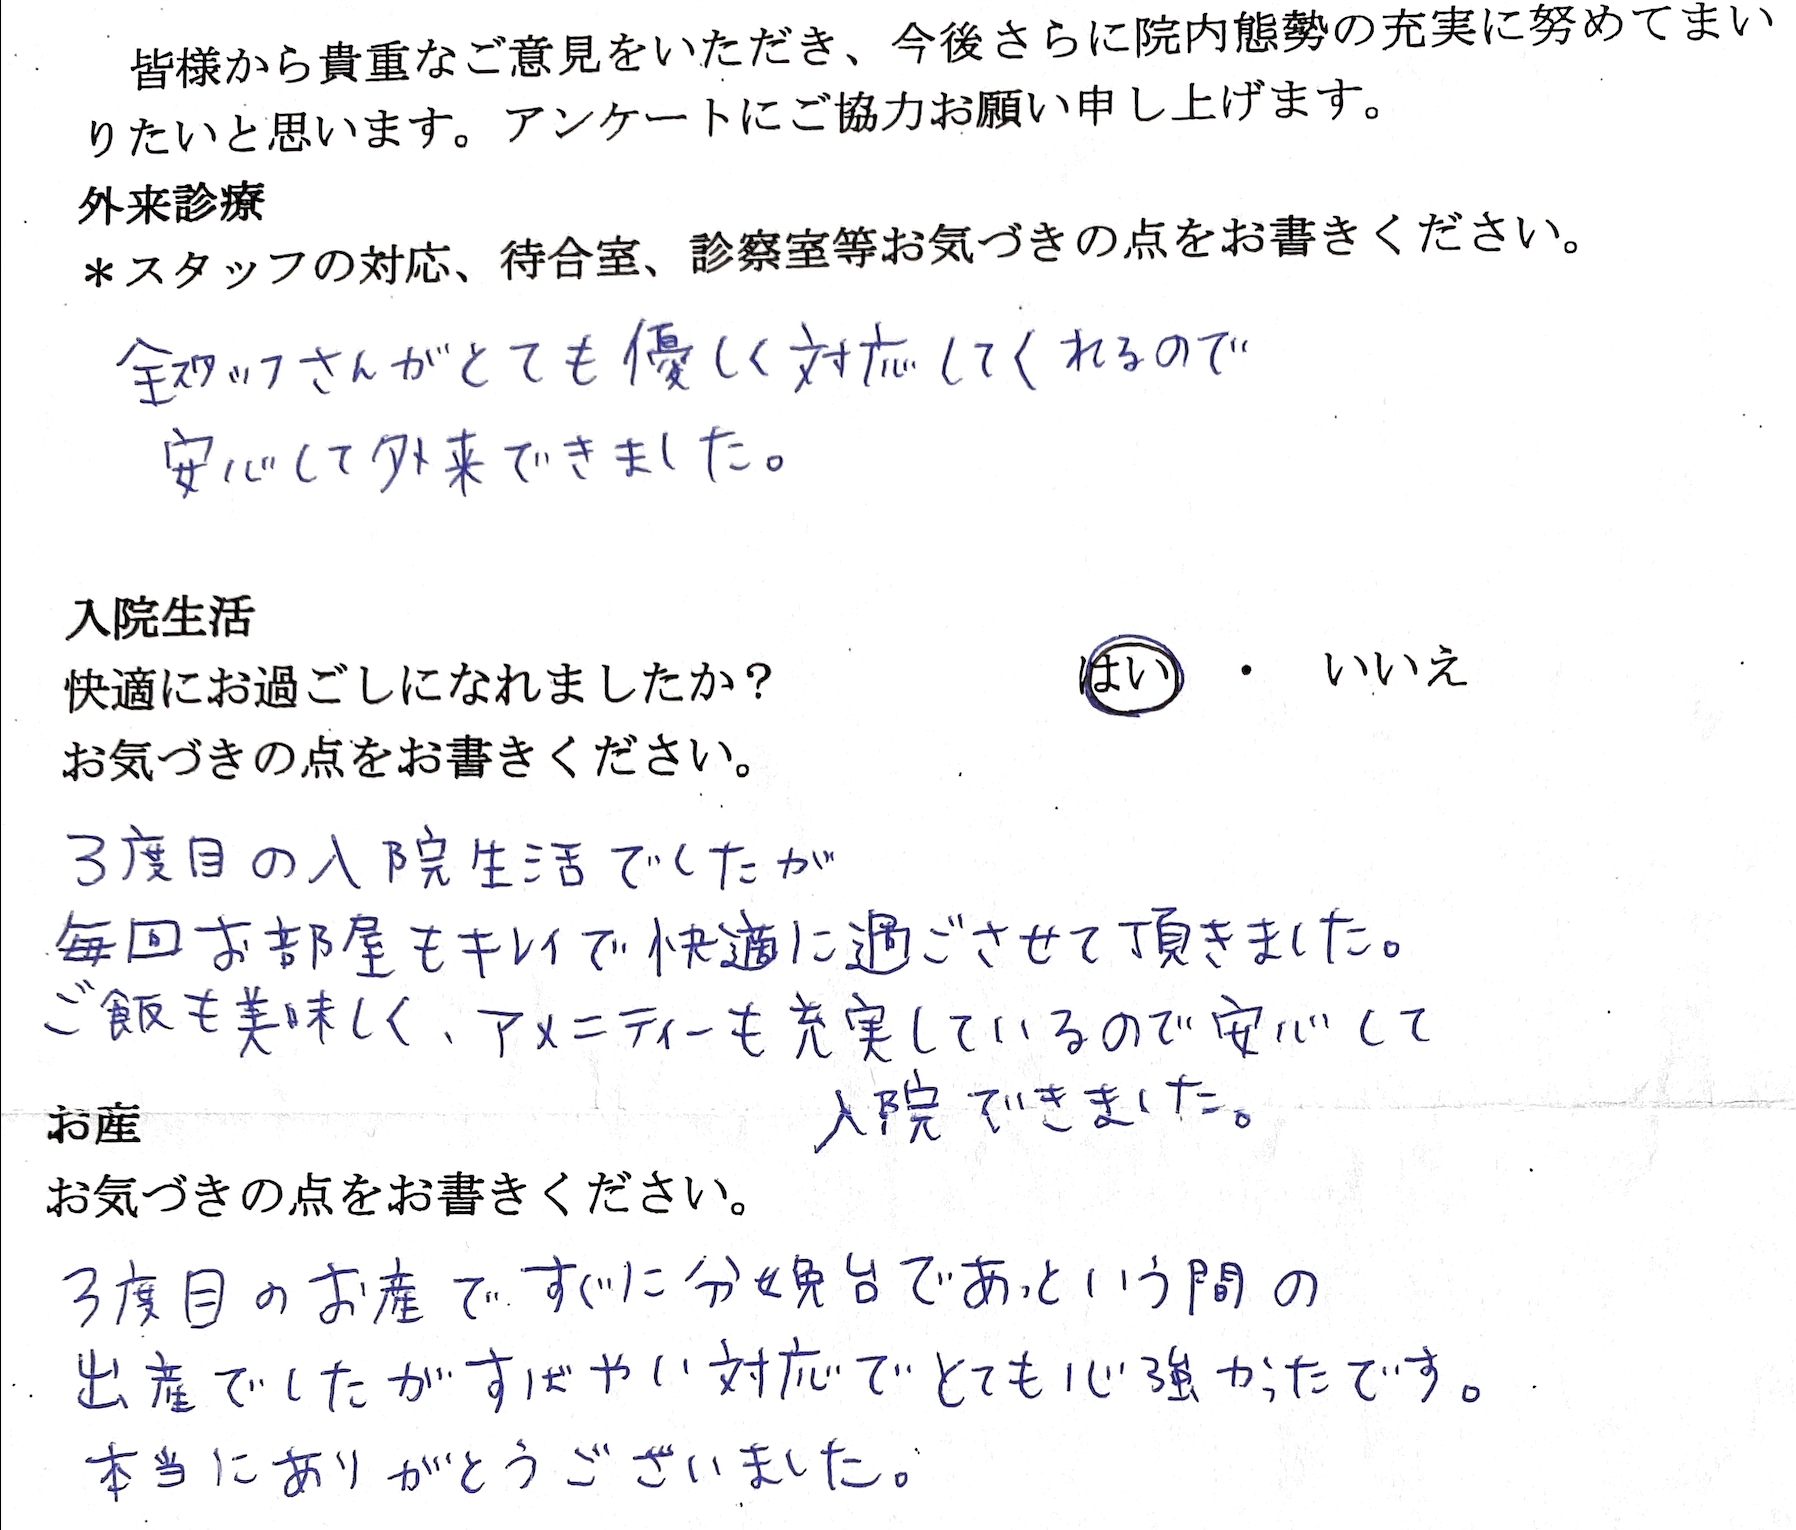 皆様から貴重なご意見をいただき、今後さらに院内態勢の充実に努めてまい
りたいと思います。アンケートにご協力お願い申し上げます。
外来診療
＊スタッフの対応、待合室、診察室等お気づきの点をお書きください。
全スタッフさんがとても優しく対応してくれるので
安心して外来できました。
入院生活
快適にお過ごしになれましたか？ はい ・ いいえ
お気づきの点をお書きください。
3度目の入院生活でしたが
毎回お部屋もキレイで快適に過ごさせて頂きました。
ご飯も美味しく、アメニティーも充実しているので安心して
入院できました。
お産
お気づきの点をお書きください。
3度目のお産で すぐに分娩台であっという間の
出産でしたがすばやい対応でとても心強かったです。
本当にありがとうございました。